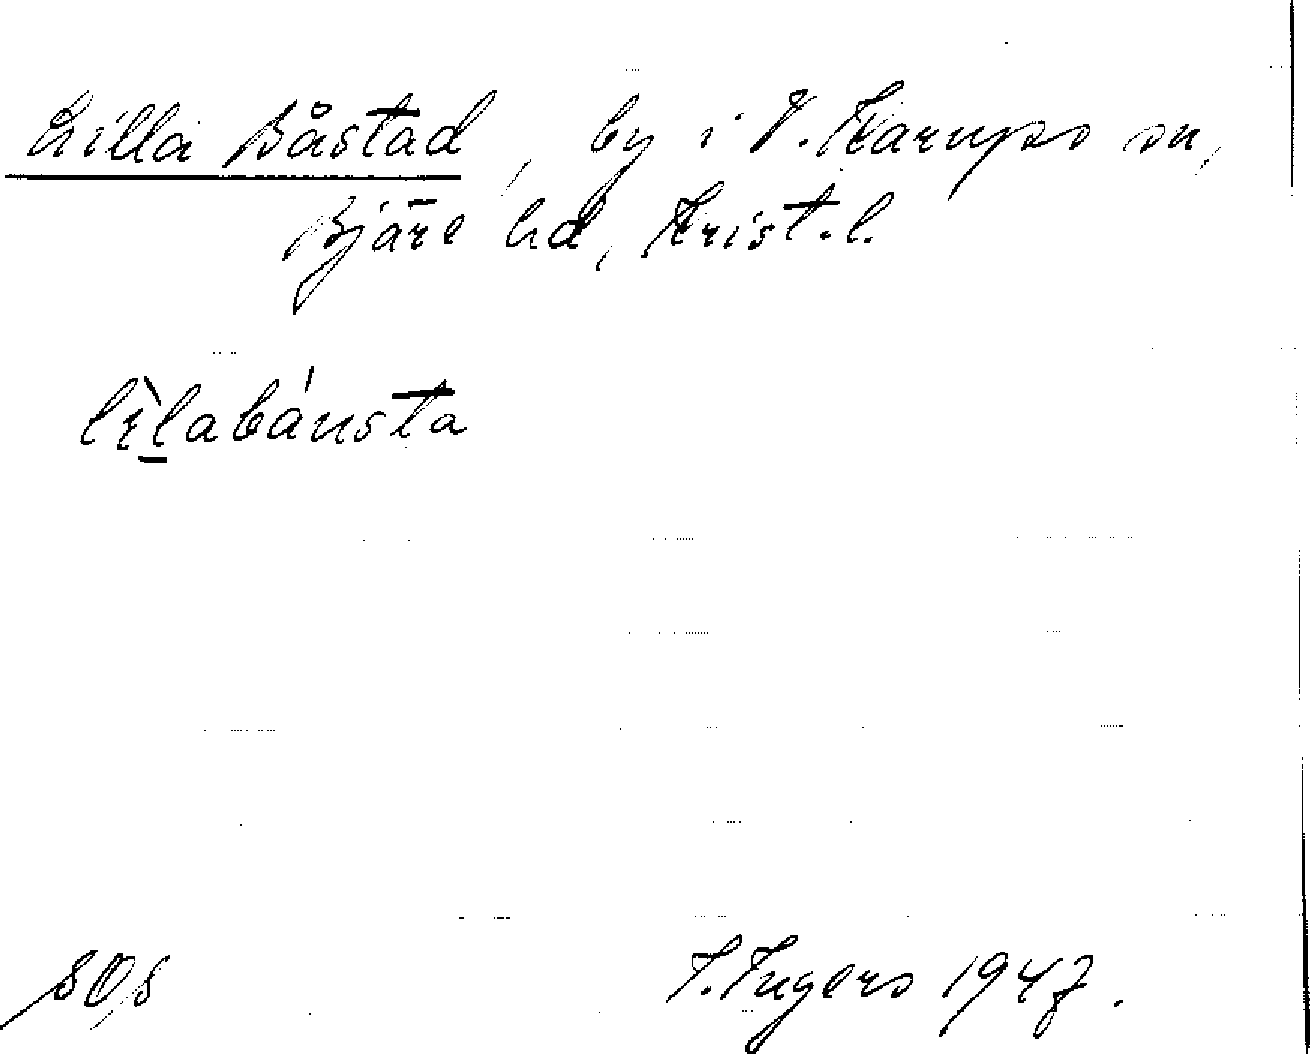 Lilla Båstad, by i V. Karups sn,
Bjäre hd, Krist. l.
lìlabánsta
I. Ingers 1947.